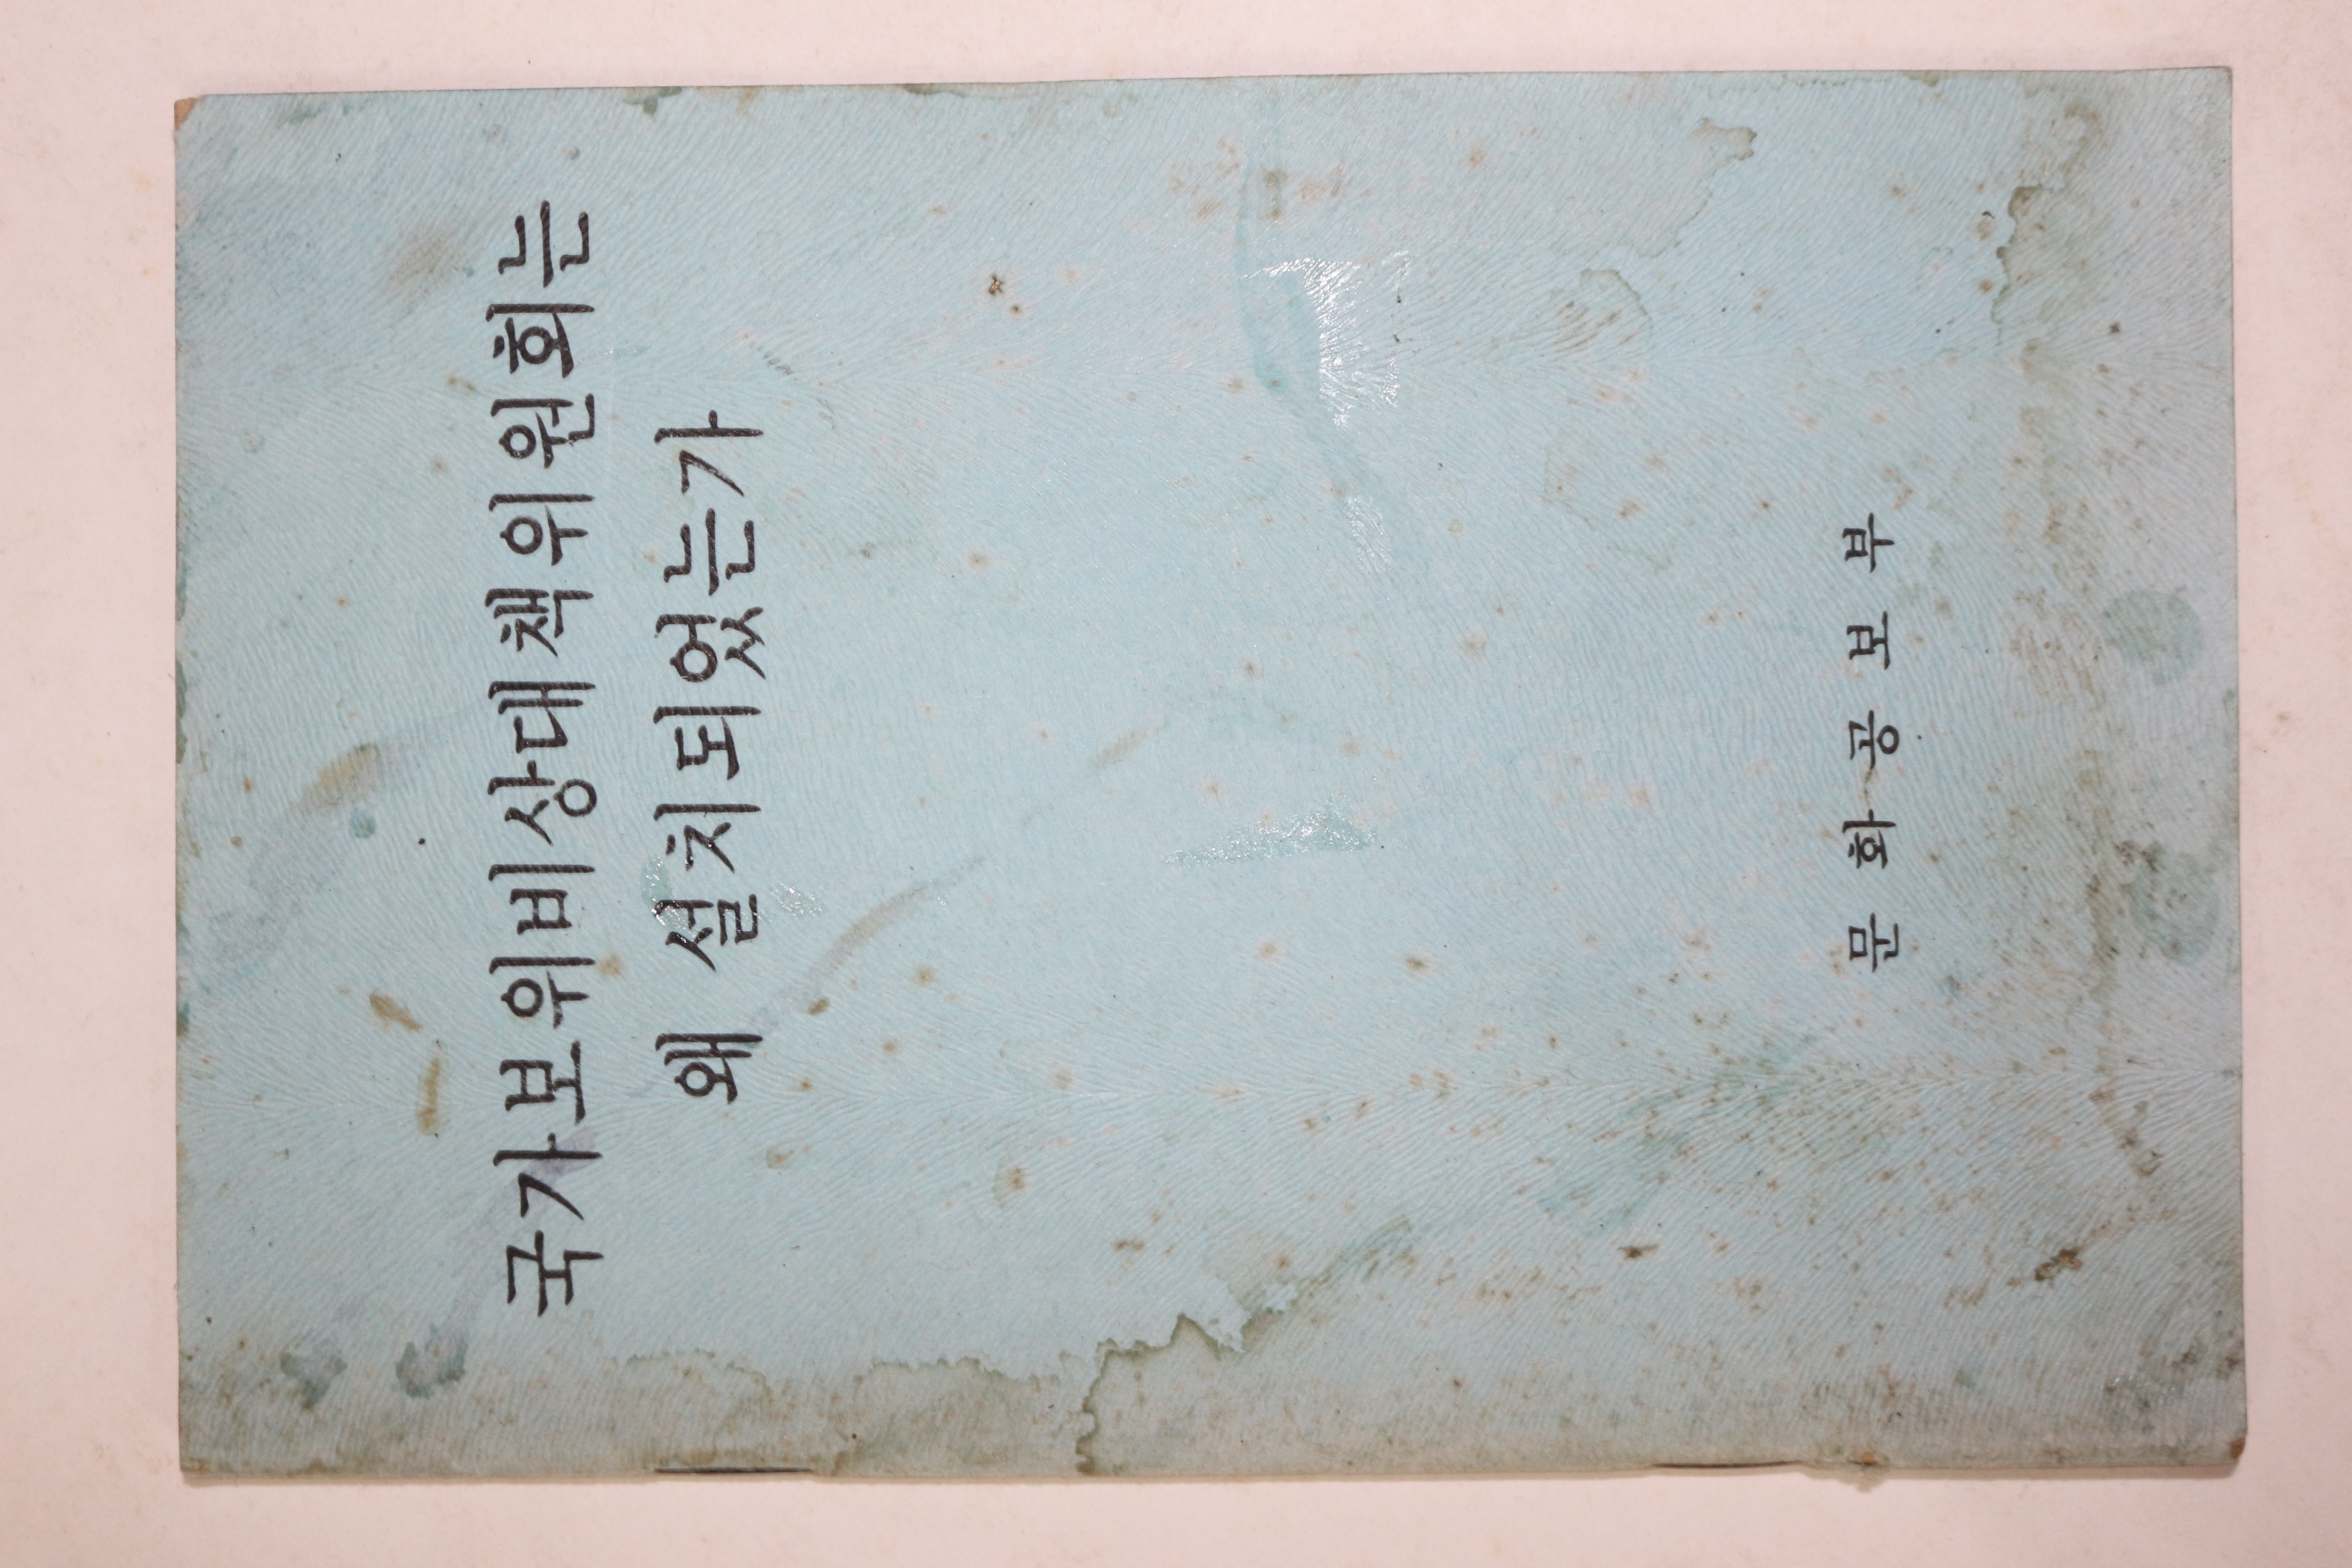 국가보위비상대책위원회는
왜 설치되었는가
문 화 공 보 부